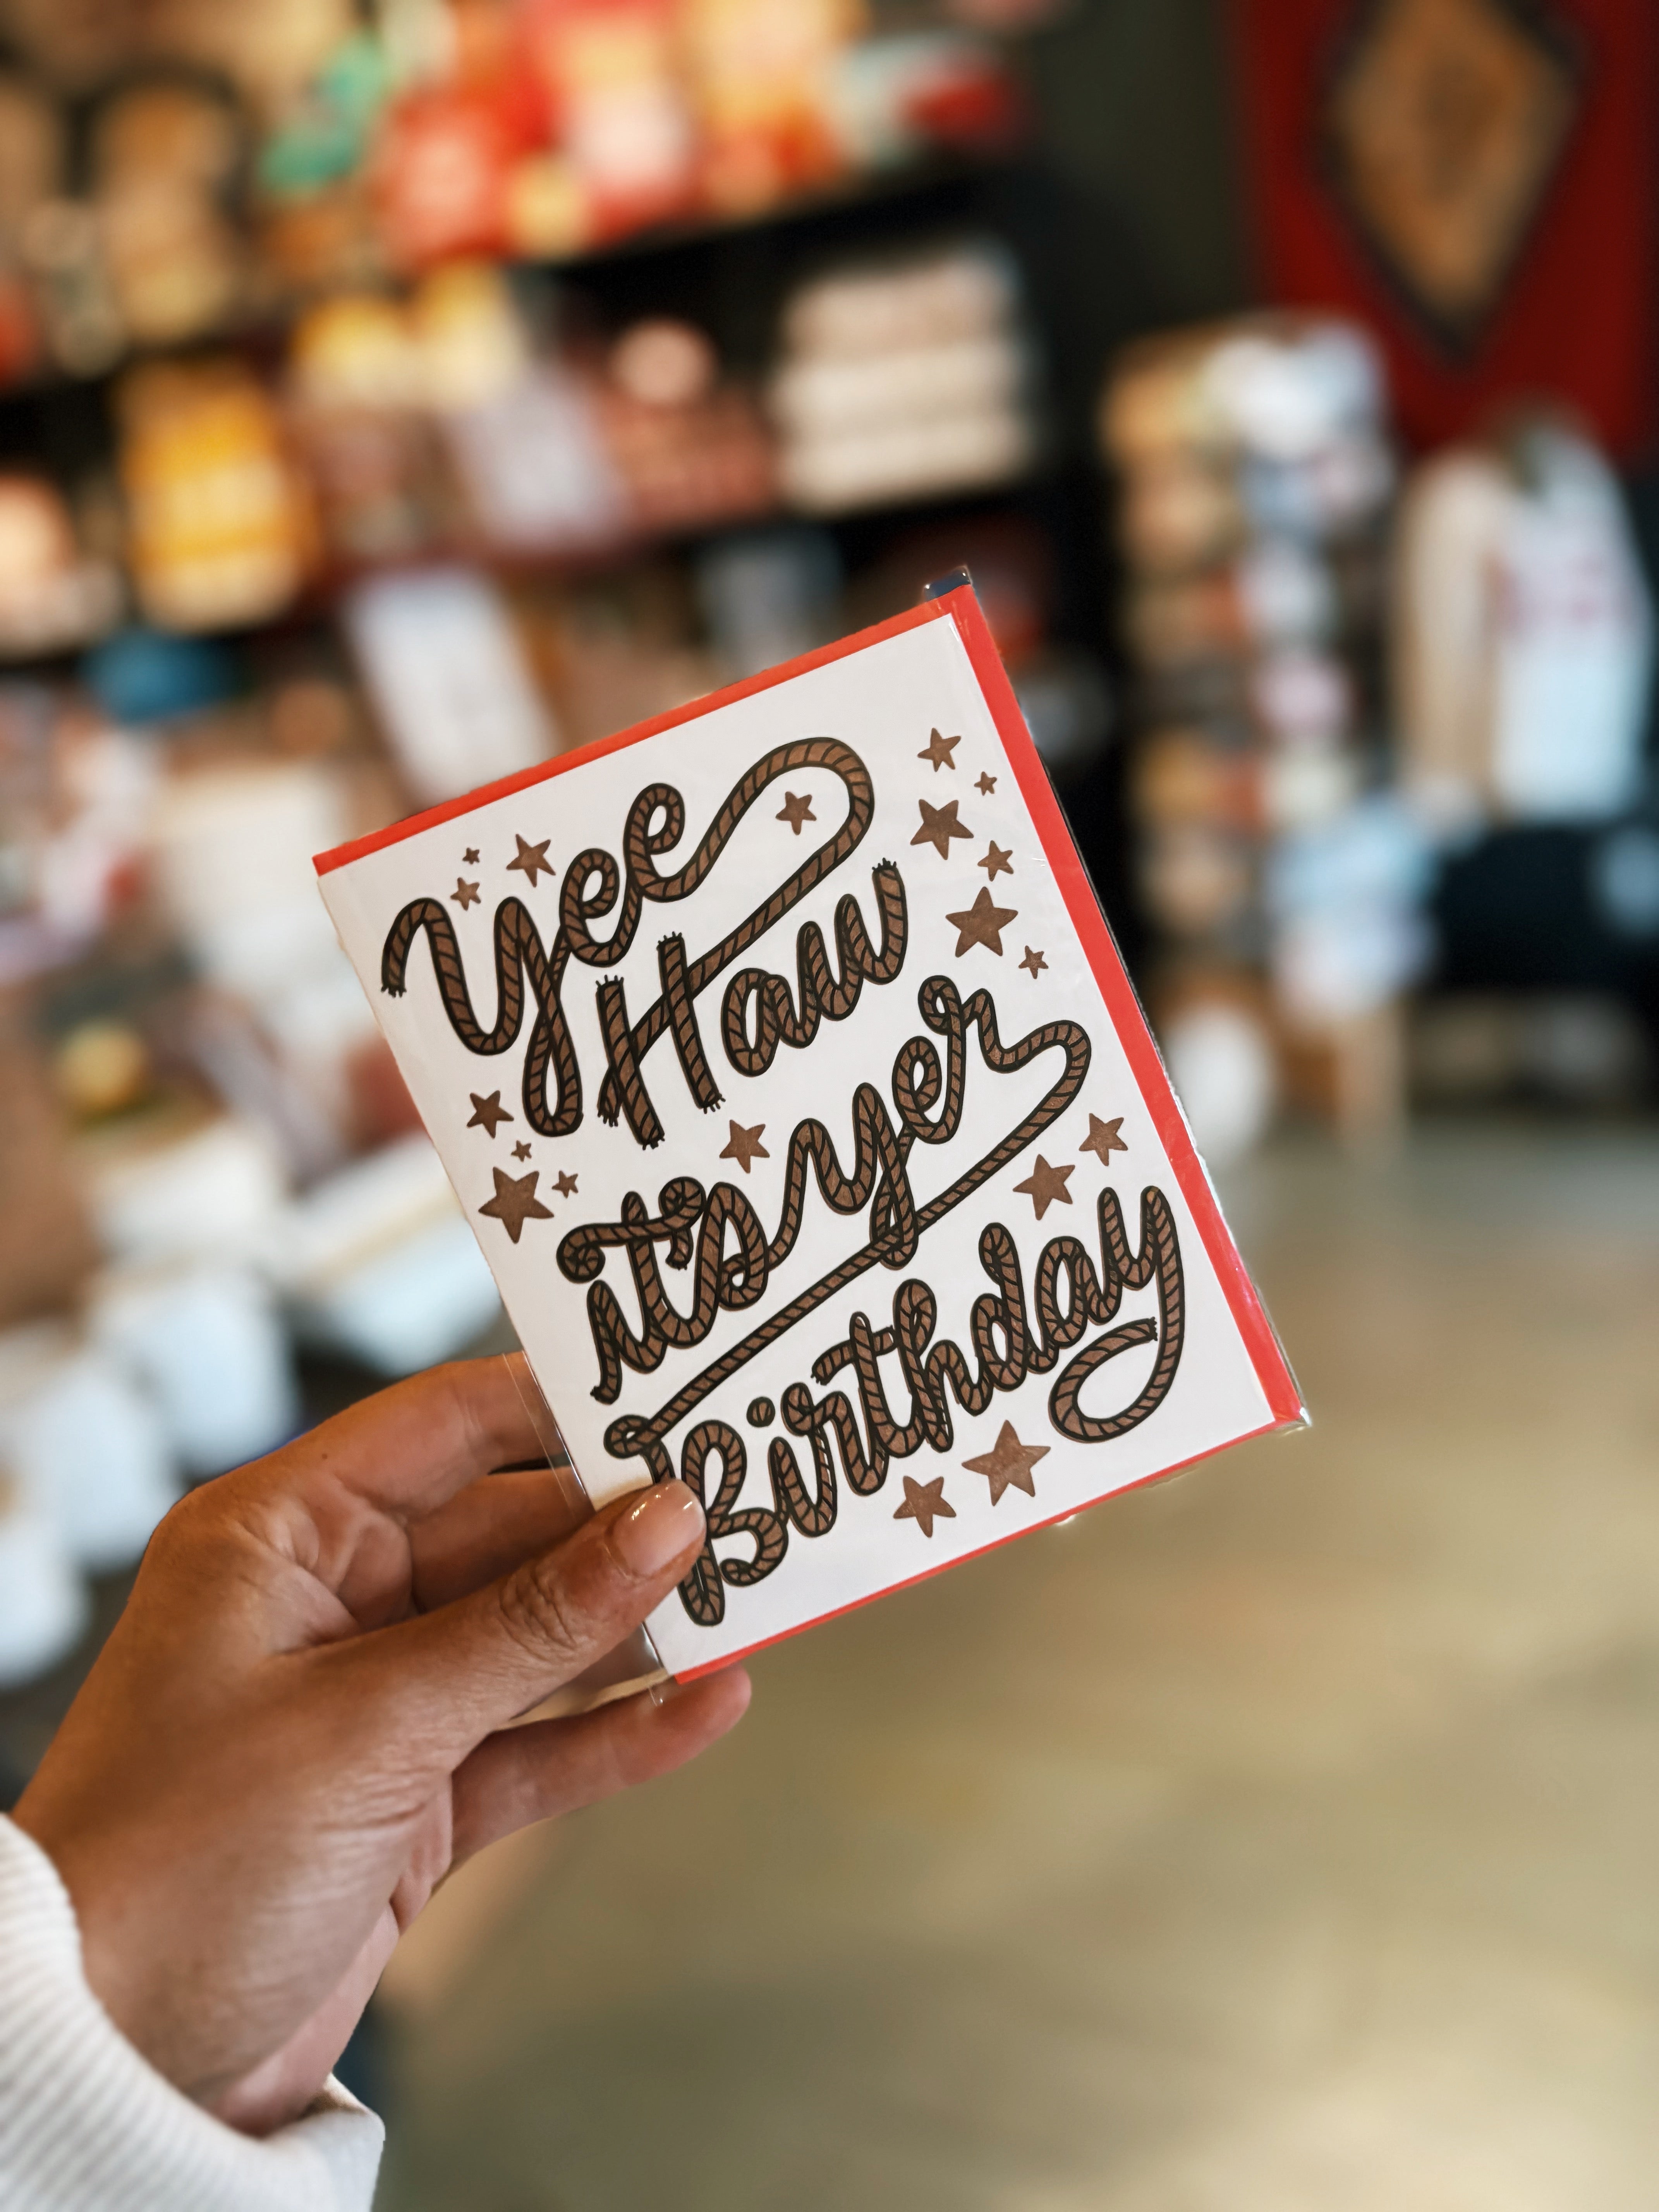 Yee
Haw
it's yer
Birthday